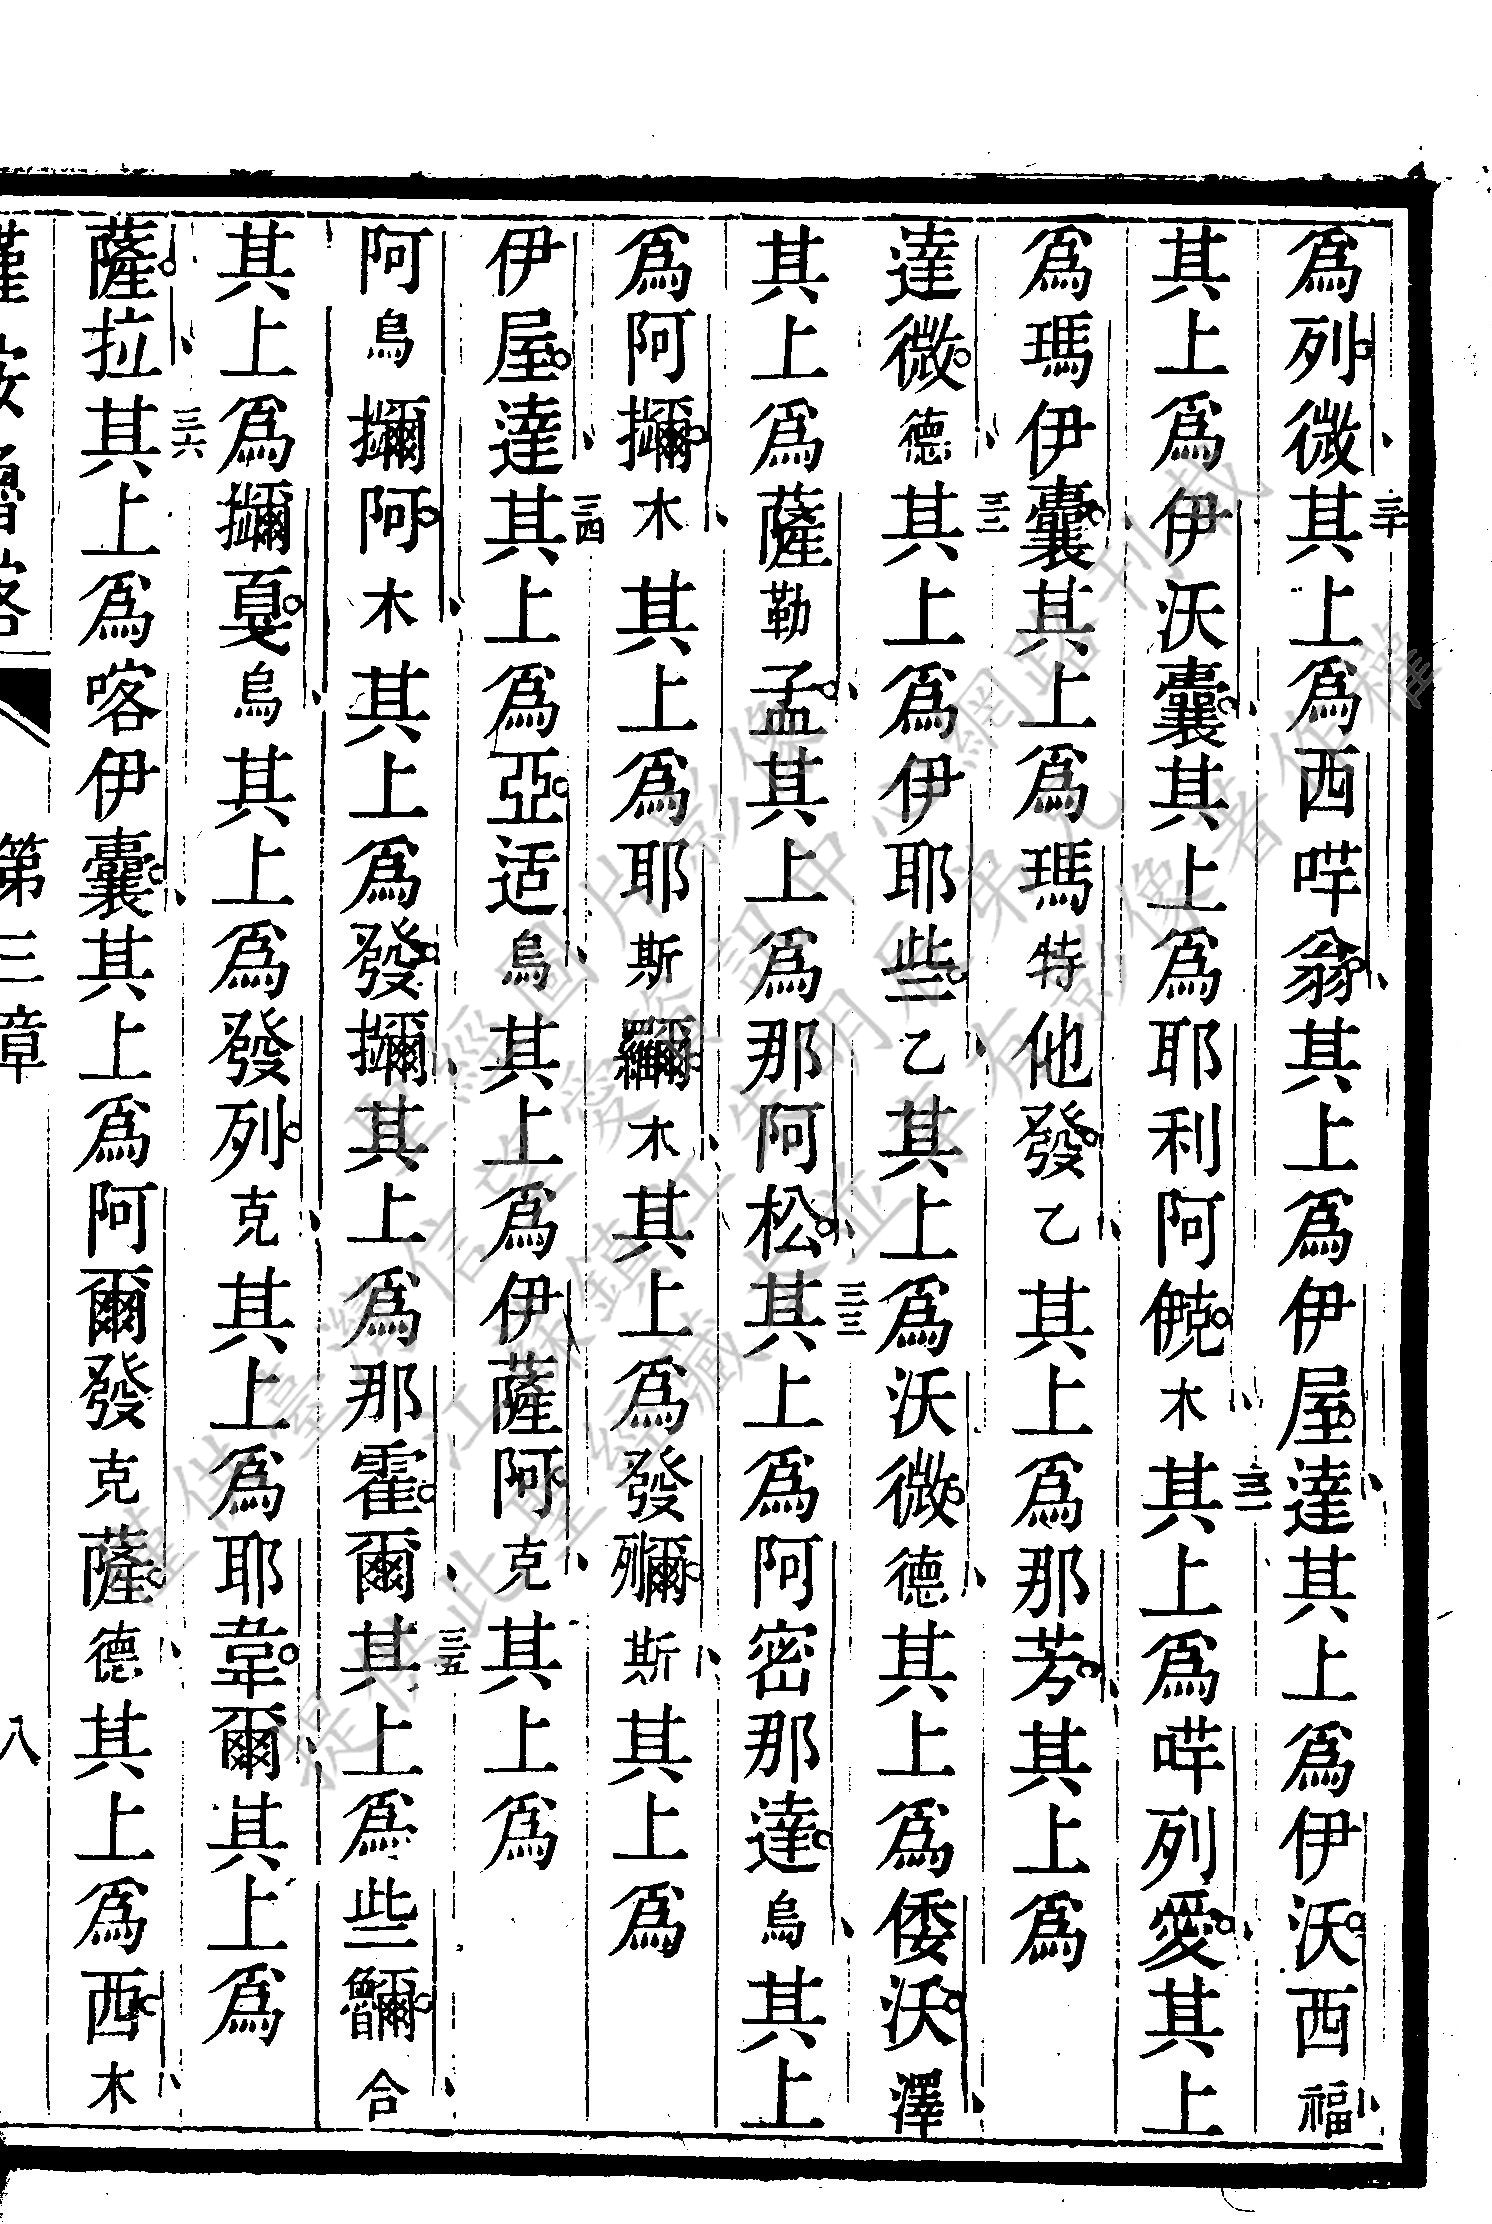 爲列微三十其上爲西哶翁其上爲伊屋達其上爲伊沃西福
其上爲伊沃囊其上爲耶利阿𠌥木三一其上爲哶列愛其上
爲瑪伊囊其上爲瑪特他發乙其上爲那芳其上爲
達微德三二其上爲伊耶些乙其上爲沃微德其上爲倭沃澤
其上爲薩勒孟其上爲那阿松三三其上爲阿密那達烏其上
爲阿㩶木其上爲耶斯羅爾木其上爲發殀爾斯其上爲
伊屋達三四其上爲亞适烏其上爲伊薩阿克其上爲
阿烏㩶阿木其上爲發㩶其上爲那霍爾三五其上爲些魯爾合
其上爲㩶戛烏其上爲發列克其上爲耶韋爾其上爲
薩拉三六其上爲喀伊囊其上爲阿爾發克薩德其上爲西木
第三章 八